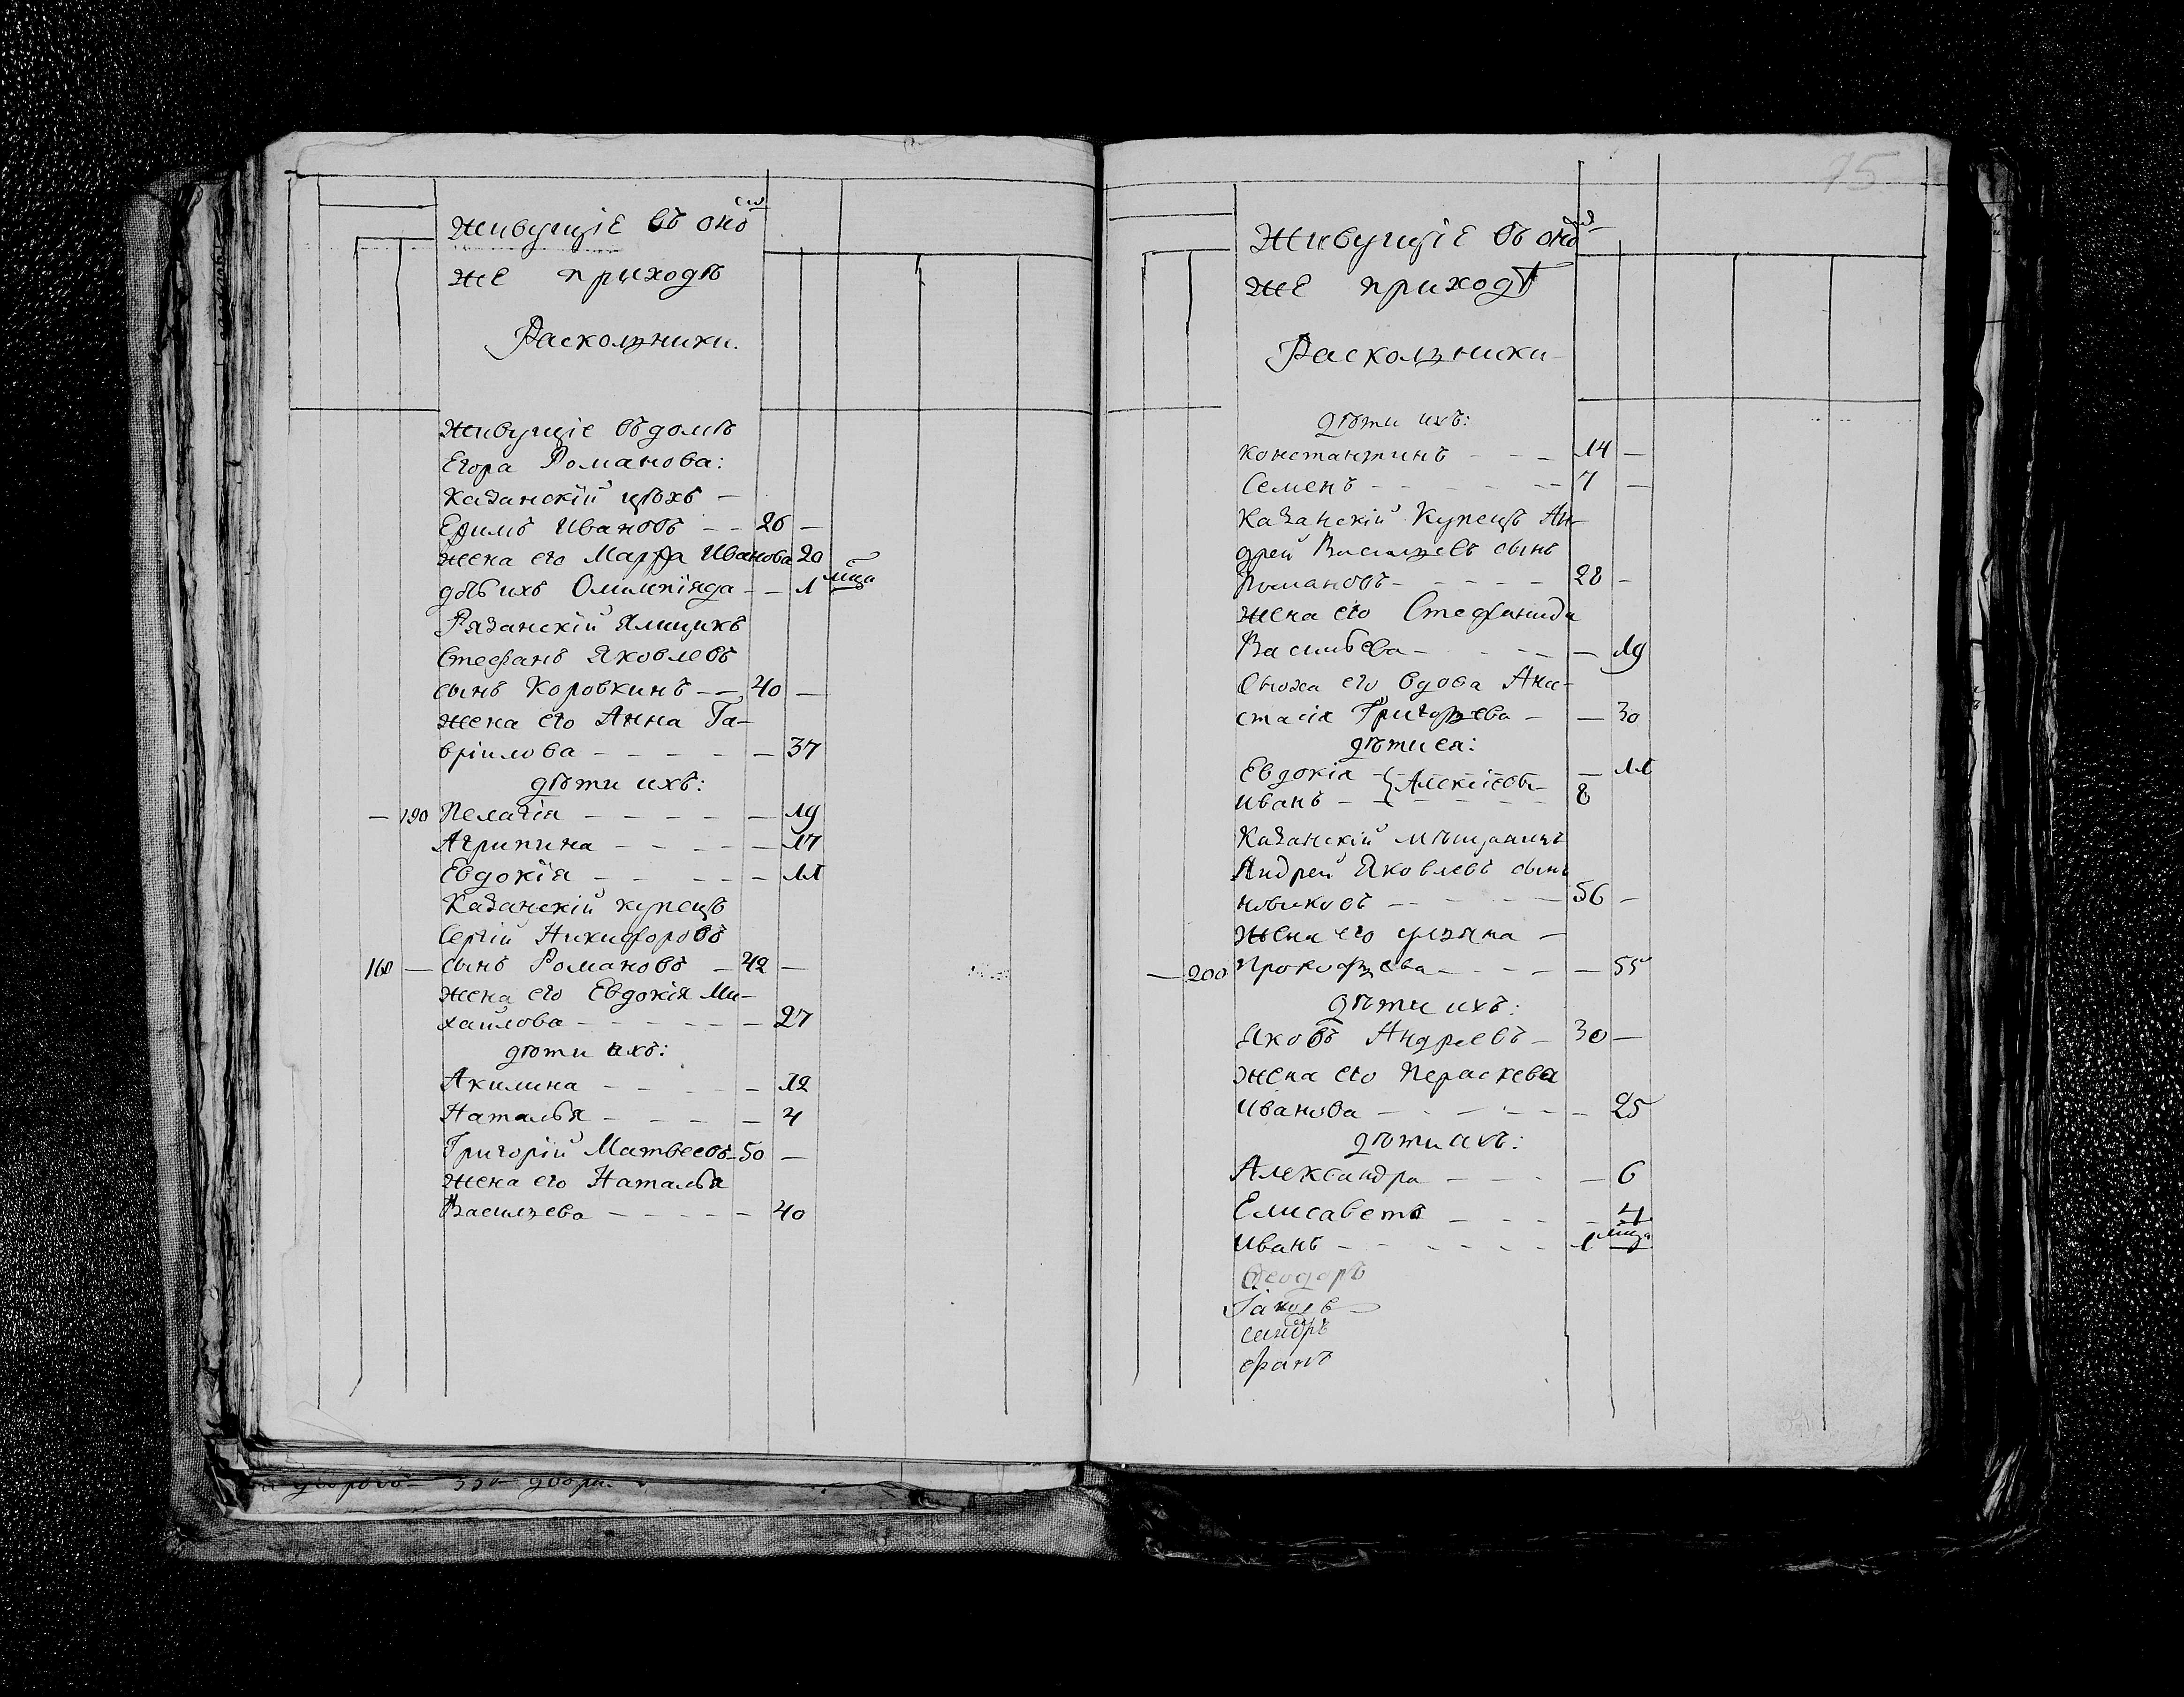 Живущіе въ оной
же приходѣ
Расколзники.
Живущіе въ домѣ
Егора Романова:
Казанскій цѣхъ —
Ефимъ Ивановъ — — 26 —
жена его Марфа Иванова 20
дочь ихъ Олимпіяда — — 1 мца
Рязанскій Ямщикъ
Стефанъ Яковлевъ
сынъ Коровкинъ — — 40 —
жена его Анна Га-
вріилова — — — — — 37
дѣти ихъ:
— 190 Пелагія — — — — — 19
Агрипина — — — — — 17
Евдокія — — — — — 11
Казанскій купецъ
Сергій Никифоровъ
160 — сынъ Романовъ — 42 —
жена его Евдокія Ми-
хаилова — — — — — — 27
дѣти ихъ:
Акилина — — — — — 12
Наталья — — — — — 4
Григорій Матвеевъ — 50 —
жена его Наталья
Василзева — — — — — 40
75
Живущіе въ оной
же приходѣ
Расколзники
дѣти ихъ:
Константинъ — — — 14 —
Семенъ — — — — — — 7 —
Казанскій Купецъ Ан-
дрей Василзевъ сынъ
Романовъ — — — — — 28 —
жена его Стефанида
Васильева — — — — — 19
Сноха его вдова Ана-
стасія Григорзева — — 30
дѣти ея:
Евдокія — Алексіевы — 11
Иванъ — — — — — — 8
Казанскій мѣщанинъ
Андрей Яковлевъ сынъ
Новиковъ — — — — — 56 —
жена его Улзяна —
— 200 Прокофзева — — — — — 55
дѣти ихъ:
Яковъ Андреевъ — 30 —
жена его Параскева
Иванова — — — — — — 25
дѣти ихъ:
Александра — — — — 6
Елисавета — — — — 4
Иванъ — — — — — — 1 мца
Феодоръ
Іаковъ